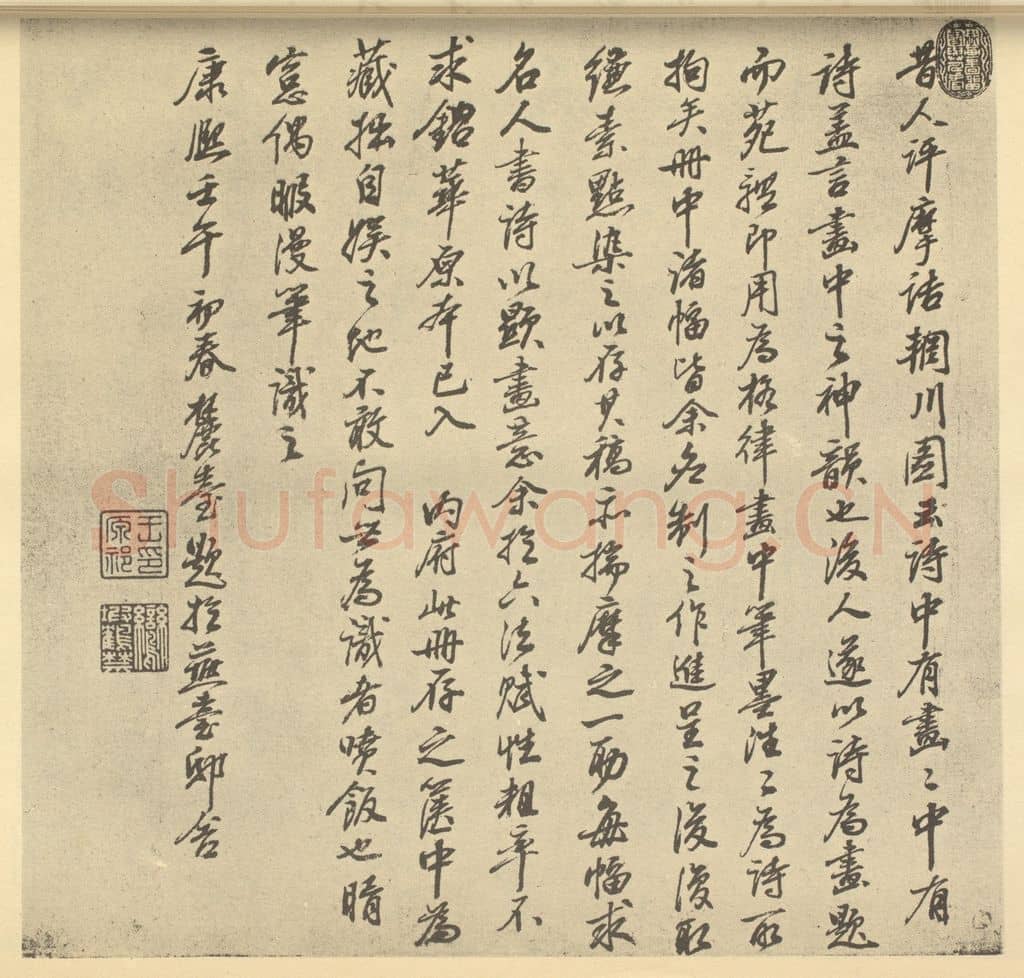 昔人評摩詰輞川圖云詩中有畫〻中有
詩蓋言畫中之神韻也後人遂以詩為畫題
而苑體即用為格律畫中筆墨往〻為詩所
拘矣冊中諸幅皆余應制之作進呈之後復取
縑素點染之以存其稿亦揣摩之一助每幅求
名人書詩以顯畫意余於六法賦性粗率不
求鉛華原本已入 內府此冊存之篋中為
藏拙自娛之地不敢向世為識者噴飯也晴
窓偶暇漫筆識之
康熙壬午初春麓臺題於燕臺邸舍
王印原祁
Shufawang.CN